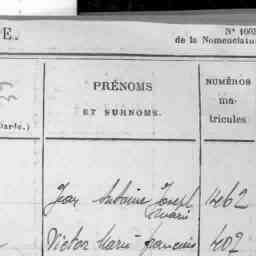 E.
N° 1603
de la Nomenclatu
PRÉNOMS
ET SURNOMS.
NUMÉROS
ma-
tricules
Jean Antoine Joseph
Marie
1462
Victor Marie francois
402